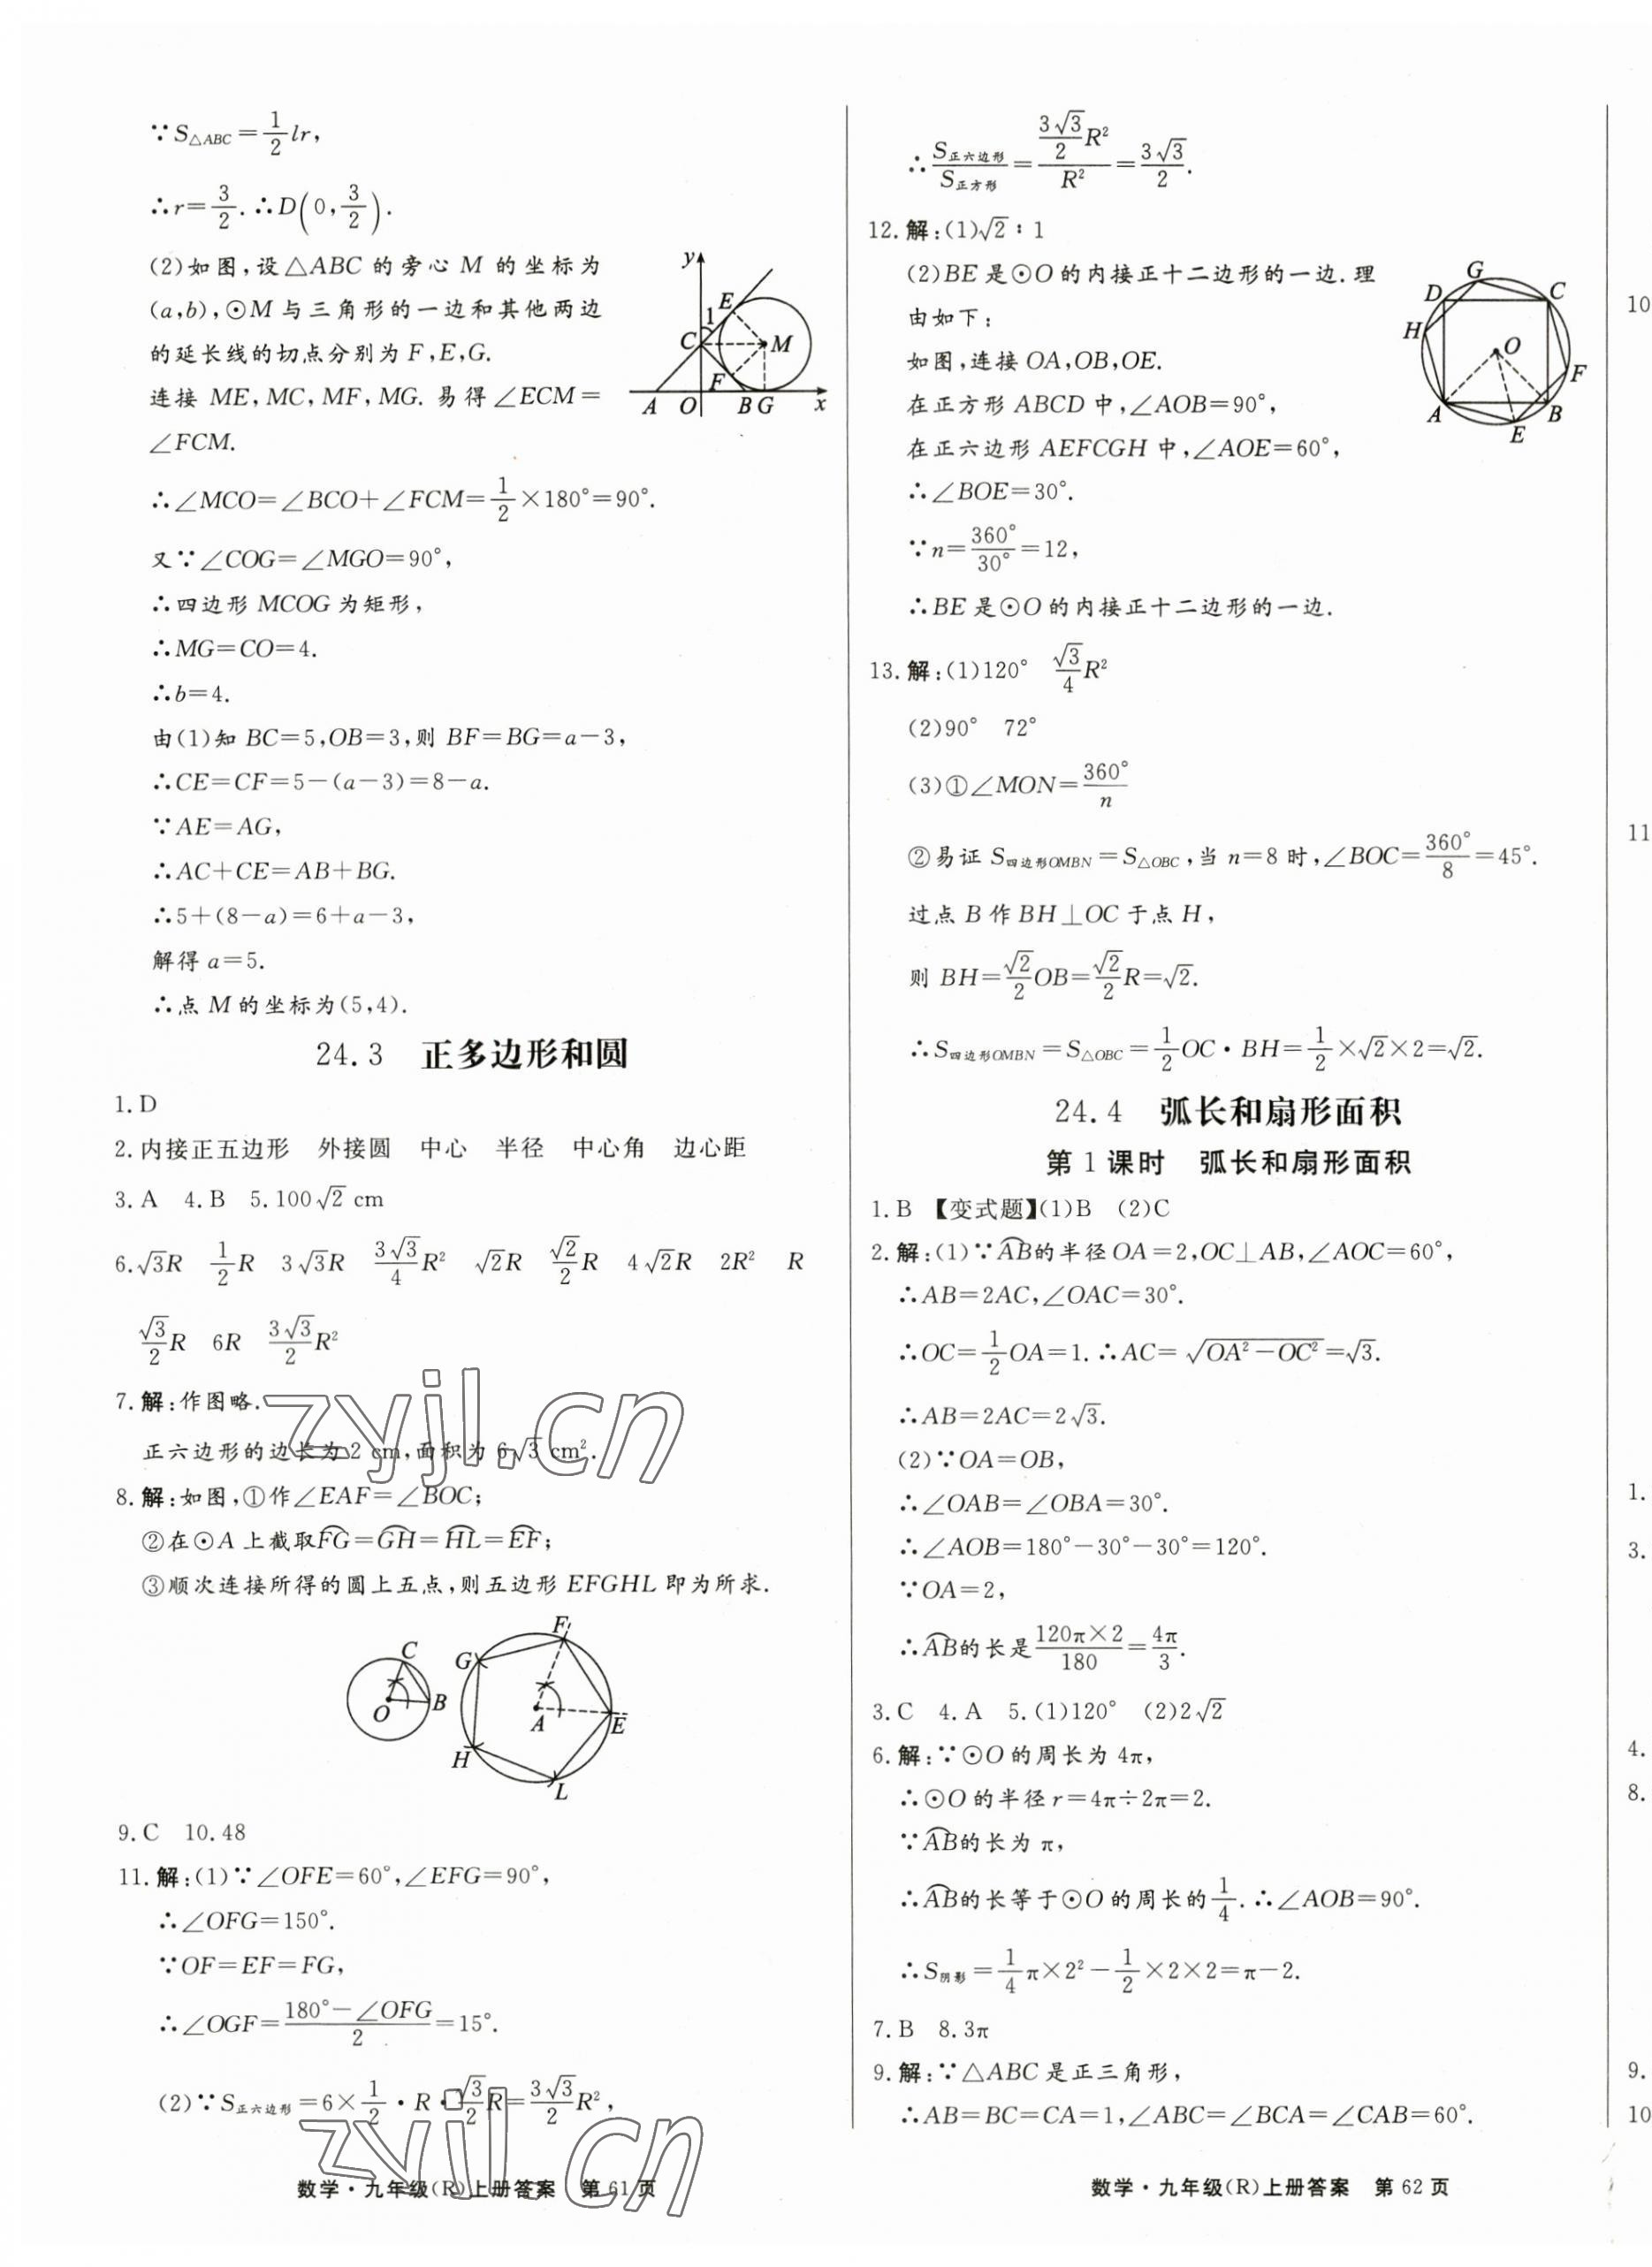 ∵S△ABC=1/2lr,
∴r=3/2.∴D(0,3/2).
(2)如图,设△ABC的旁心M的坐标为
(a,b),⊙M与三角形的一边和其他两边
的延长线的切点分别为F,E,G.
连接ME,MC,MF,MG.易得∠ECM=
∠FCM.
y
E
1
C
M
F
A O B G x
∴∠MCO=∠BCO+∠FCM=1/2×180°=90°.
又∵∠COG=∠MGO=90°,
∴四边形MCOG为矩形,
∴MG=CO=4.
∴b=4.
由(1)知BC=5,OB=3,则BF=BG=a-3,
∴CE=CF=5-(a-3)=8-a.
∵AE=AG,
∴AC+CE=AB+BG.
∴5+(8-a)=6+a-3,
解得a=5.
∴点M的坐标为(5,4).
24.3 正多边形和圆
1.D
2.内接正五边形 外接圆 中心 半径 中心角 边心距
3.A 4.B 5.100√2 cm
6.√3R 1/2R 3√3R 3√3/4R² √2R √2/2R 4√2R 2R² R
√3/2R 6R 3√3/2R²
7.解:作图略.
正六边形的边长为2 cm,面积为6√3 cm².
8.解:如图,①作∠EAF=∠BOC;
②在⊙A上截取F͡G=G͡H=H͡L=E͡F;
③顺次连接所得的圆上五点,则五边形EFGHL即为所求.
C
O B
F
G
A E
H
L
9.C 10.48
11.解:(1)∵∠OFE=60°,∠EFG=90°,
∴∠OFG=150°.
∵OF=EF=FG,
∴∠OGF=(180°-∠OFG)/2=15°.
(2)∵S正六边形=6×1/2·R·√3/2R=3√3/2R²,
数学·九年级(R)上册答案 第61页
∴S正六边形/S正方形=(3√3/2R²)/R²=3√3/2.
12.解:(1)√2∶1
(2)BE是⊙O的内接正十二边形的一边.理
由如下:
如图,连接OA,OB,OE.
在正方形ABCD中,∠AOB=90°,
在正六边形AEFCGH中,∠AOE=60°,
G
D C
H
O
F
A B
E
∴∠BOE=30°.
∵n=360°/30°=12,
∴BE是⊙O的内接正十二边形的一边.
13.解:(1)120° √3/4R²
(2)90° 72°
(3)①∠MON=360°/n
②易证S四边形OMBN=S△OBC,当n=8时,∠BOC=360°/8=45°.
过点B作BH⊥OC于点H,
则BH=√2/2OB=√2/2R=√2.
∴S四边形OMBN=S△OBC=1/2OC·BH=1/2×√2×2=√2.
24.4 弧长和扇形面积
第1课时 弧长和扇形面积
1.B 【变式题】(1)B (2)C
2.解:(1)∵A͡B的半径OA=2,OC⊥AB,∠AOC=60°,
∴AB=2AC,∠OAC=30°.
∴OC=1/2OA=1.∴AC=√(OA²-OC²)=√3.
∴AB=2AC=2√3.
(2)∵OA=OB,
∴∠OAB=∠OBA=30°.
∴∠AOB=180°-30°-30°=120°.
∵OA=2,
∴A͡B的长是120π×2/180=4π/3.
3.C 4.A 5.(1)120° (2)2√2
6.解:∵⊙O的周长为4π,
∴⊙O的半径r=4π÷2π=2.
∵A͡B的长为π,
∴A͡B的长等于⊙O的周长的1/4.∴∠AOB=90°.
∴S阴影=1/4π×2²-1/2×2×2=π-2.
7.B 8.3π
9.解:∵△ABC是正三角形,
∴AB=BC=CA=1,∠ABC=∠BCA=∠CAB=60°.
数学·九年级(R)上册答案 第62页
10
11
1.
3.
4.
8.
9.
10
zyjl.cn
zyjl.cn